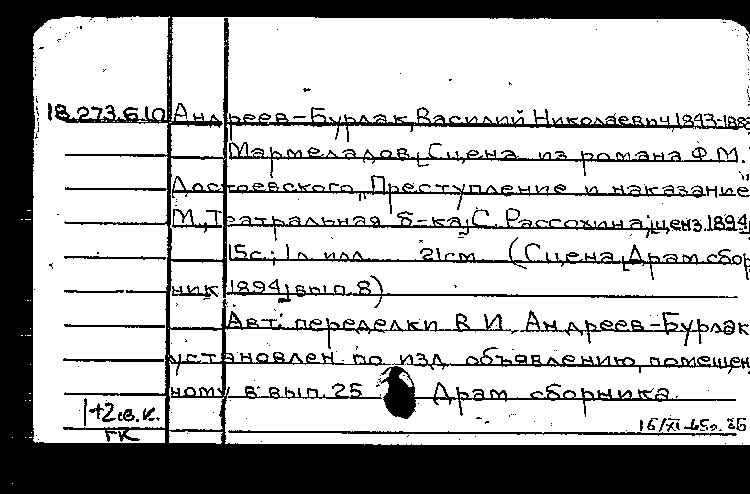 18.273.6.10 Андреев-Бурлак, Василий Николаевич, 1843-188
Мармеладов. Сцена из романа Ф.М.
Достоевского „Преступление и наказание"
М., Театральная б-ка, С. Рассохина, ценз. 1894,
15с.; 1л. илл. 21см (Сцена. Драм сбор
ник 1894, вып. 8)
Авт. переделки В.И. Андреев-Бурлак
установлен по изд. объявлению, помещен
ному в вып. 25 Драм сборника.
1+2св.к.
ГК